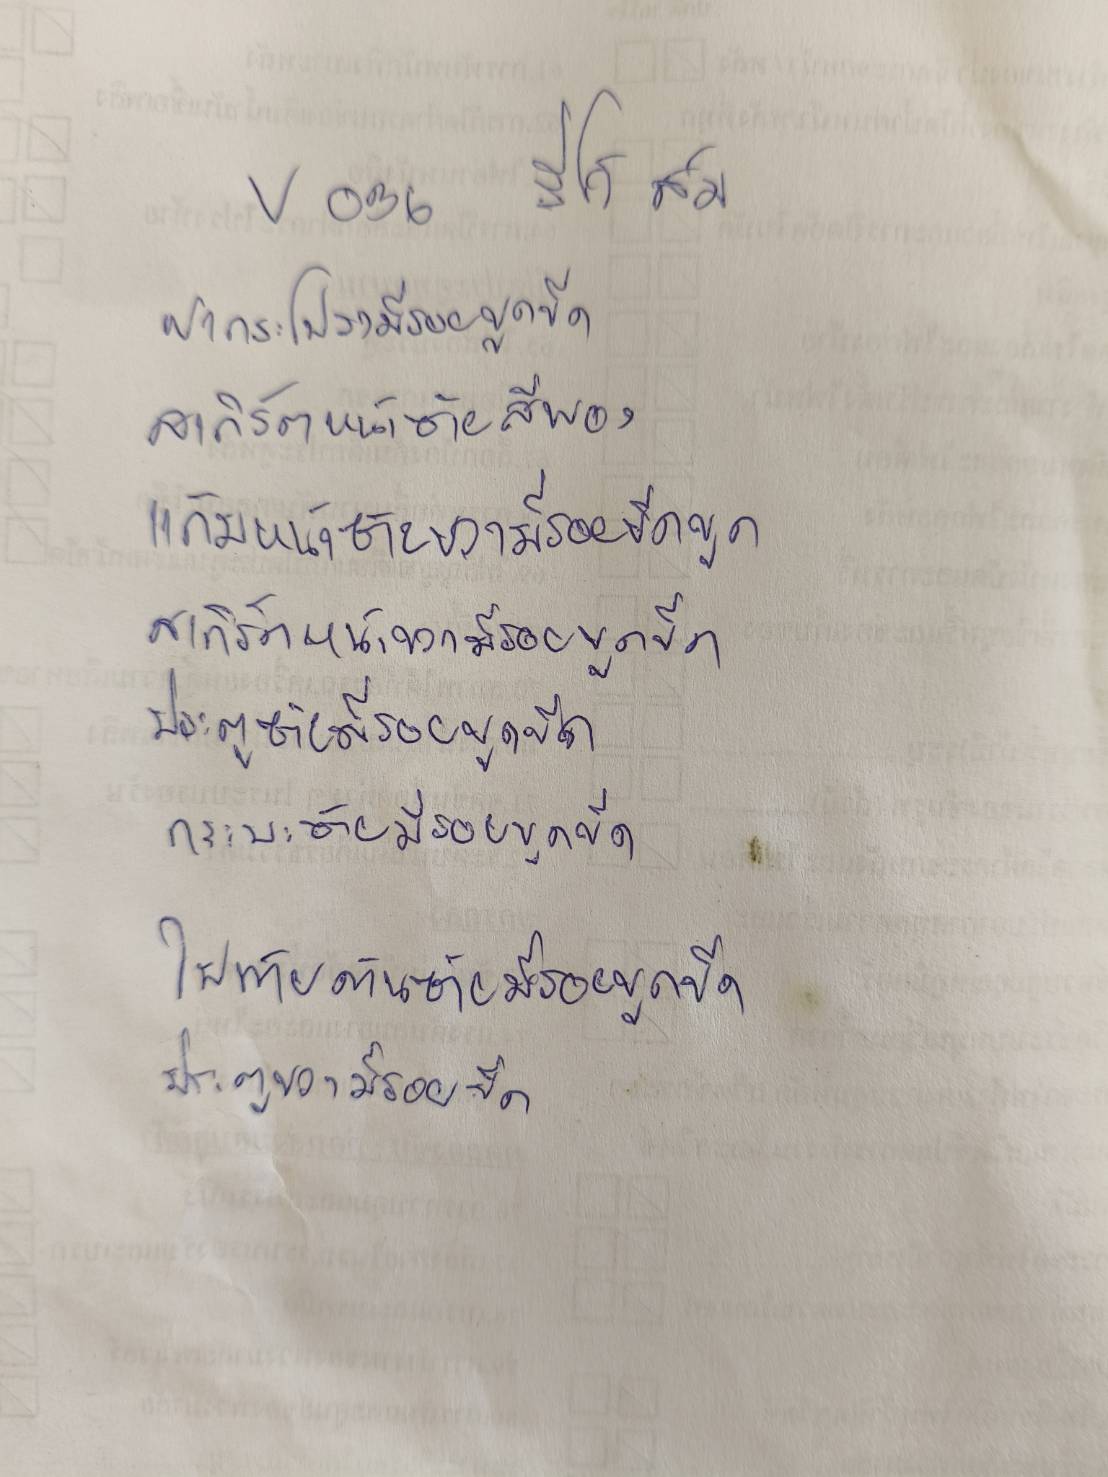 V 036 รีโว่ ส้ม
ฝากระโปรงมีรอยขูดขีด
สเกิร์ตหน้าซ้ายสีพอง
แก้มหน้าซ้ายขวามีรอยขีดขูด
สเกิร์ตหน้าขวามีรอยขูดขีด
ประตูซ้ายมีรอยขูดขีด
กระบะซ้ายมีรอยขูดขีด
ไฟท้ายด้านซ้ายมีรอยขูดขีด
ประตูขวามีรอยขีด